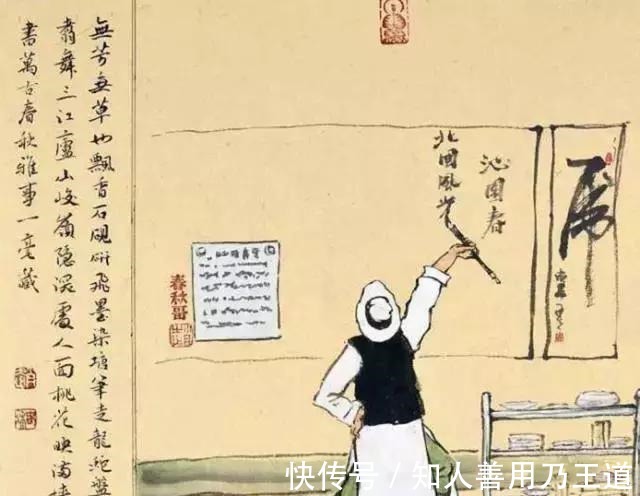 虎
沁園春
北國風光
春秋哥
無芳無草也飄香石硯研飛墨染塘筆走龍蛇盤
翥舞三江廬山峻嶺隱深處人面桃花映滿
書萬古春秋雅事一毫藏
快传号/知人善用乃王道